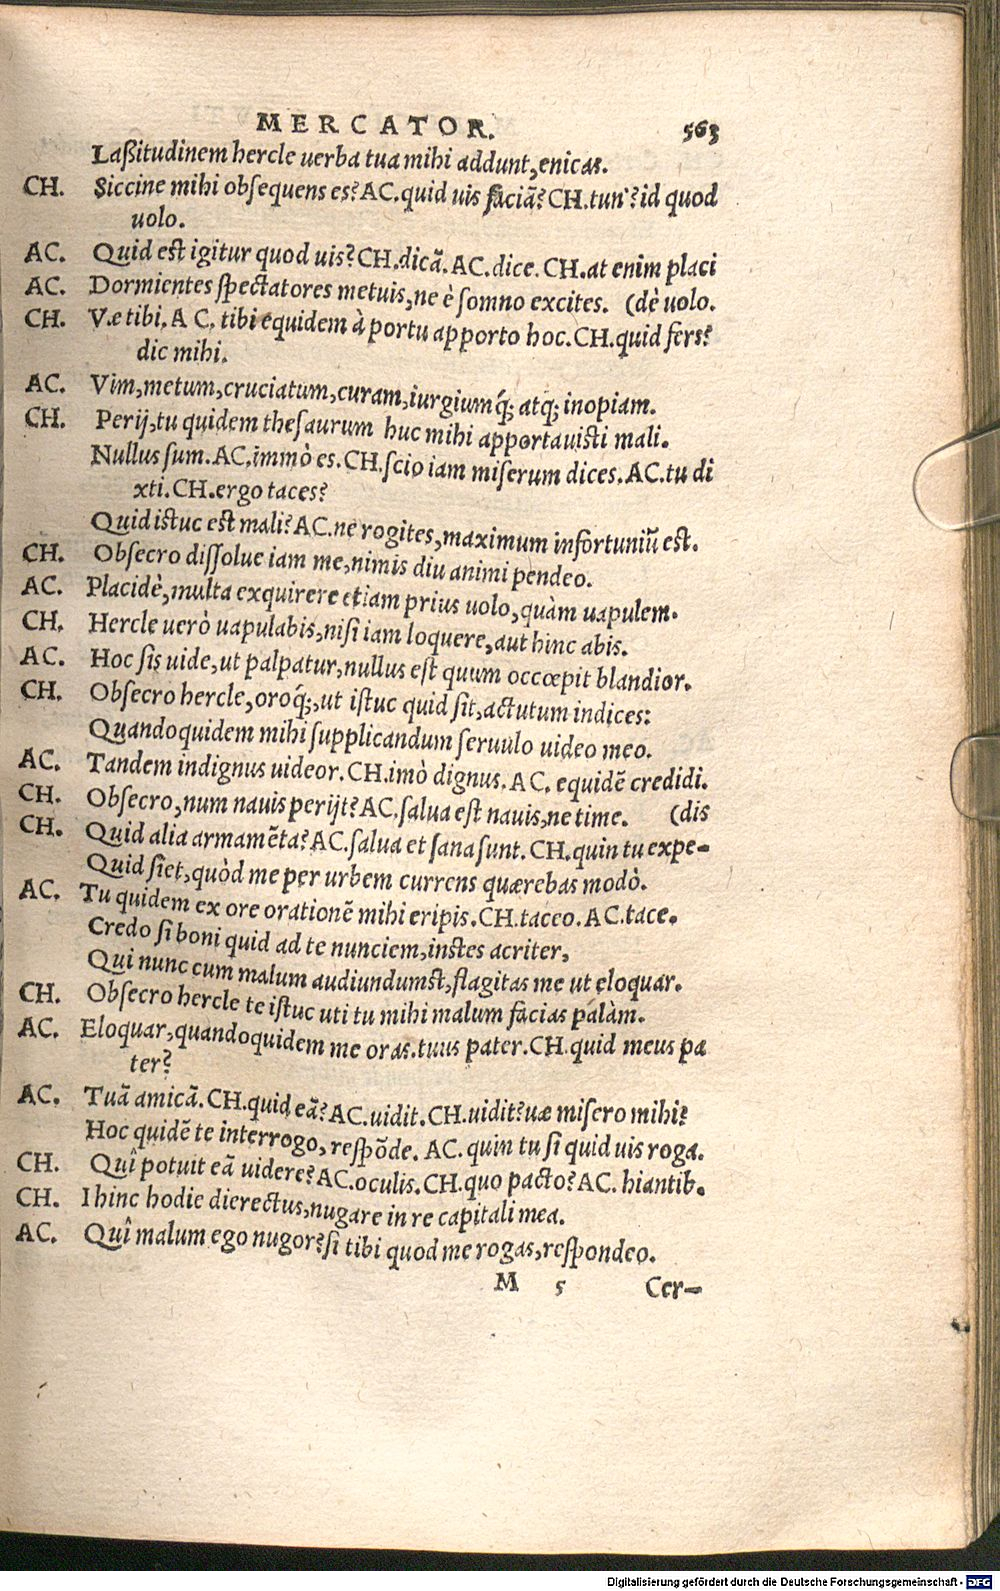 MERCATOR. 563
Laßitudinem hercle uerba tua mihi addunt, enicas.
CH. Siccine mihi obsequens es? AC. quid uis faciā? CH. tun'? id quod
uolo.
AC. Quid est igitur quod uis? CH. dicā. AC. dice. CH. at enim placi
AC. Dormientes spectatores metuis, ne è somno excites. (dè uolo.
CH. Væ tibi. AC. tibi equidem à portu apporto hoc. CH. quid fers?
dic mihi.
AC. Vim, metum, cruciatum, curam, iurgiumq́; atq; inopiam.
CH. Perij, tu quidem thesaurum huc mihi apportauisti mali.
Nullus sum. AC. immò es. CH. scio iam miserum dices. AC. tu di
xti. CH. ergo taces?
Quid istuc est mali? AC. ne rogites, maximum infortuniū est.
CH. Obsecro dissolue iam me, nimis diu animi pendeo.
AC. Placidè, multa exquirere etiam prius uolo, quàm uapulem.
CH. Hercle uerò uapulabis, nisi iam loquere, aut hinc abis.
AC. Hoc sis uide, ut palpatur, nullus est quum occœpit blandior.
CH. Obsecro hercle, oroq́;, ut istuc quid sit, actutum indices:
Quandoquidem mihi supplicandum seruulo uideo meo.
AC. Tandem indignus uideor. CH. imò dignus. AC. equidē credidi.
CH. Obsecro, num nauis perijt? AC. salua est nauis, ne time. (dis
CH. Quid alia armamēta? AC. salua et sana sunt. CH. quin tu expe-
Quid siet, quòd me per urbem currens quærebas modò.
AC. Tu quidem ex ore orationē mihi eripis. CH. taceo. AC. tace.
Credo si boni quid ad te nunciem, instes acriter,
Qui nunc cum malum audiundumst, flagitas me ut eloquar.
CH. Obsecro hercle te istuc uti tu mihi malum facias palàm.
AC. Eloquar, quandoquidem me oras. tuus pater. CH. quid meus pa
ter?
AC. Tuā amicā. CH. quid eā? AC. uidit. CH. uidit? uæ misero mihi?
Hoc quidē te interrogo, respōde. AC. quin tu si quid uis roga.
CH. Quî potuit eā uidere? AC. oculis. CH. quo pacto? AC. hiantib.
CH. I hinc hodie dierectus, nugare in re capitali mea.
AC. Quî malum ego nugor? si tibi quod me rogas, respondeo.
M 5 Cer-
Digitalisierung gefördert durch die Deutsche Forschungsgemeinschaft - DFG